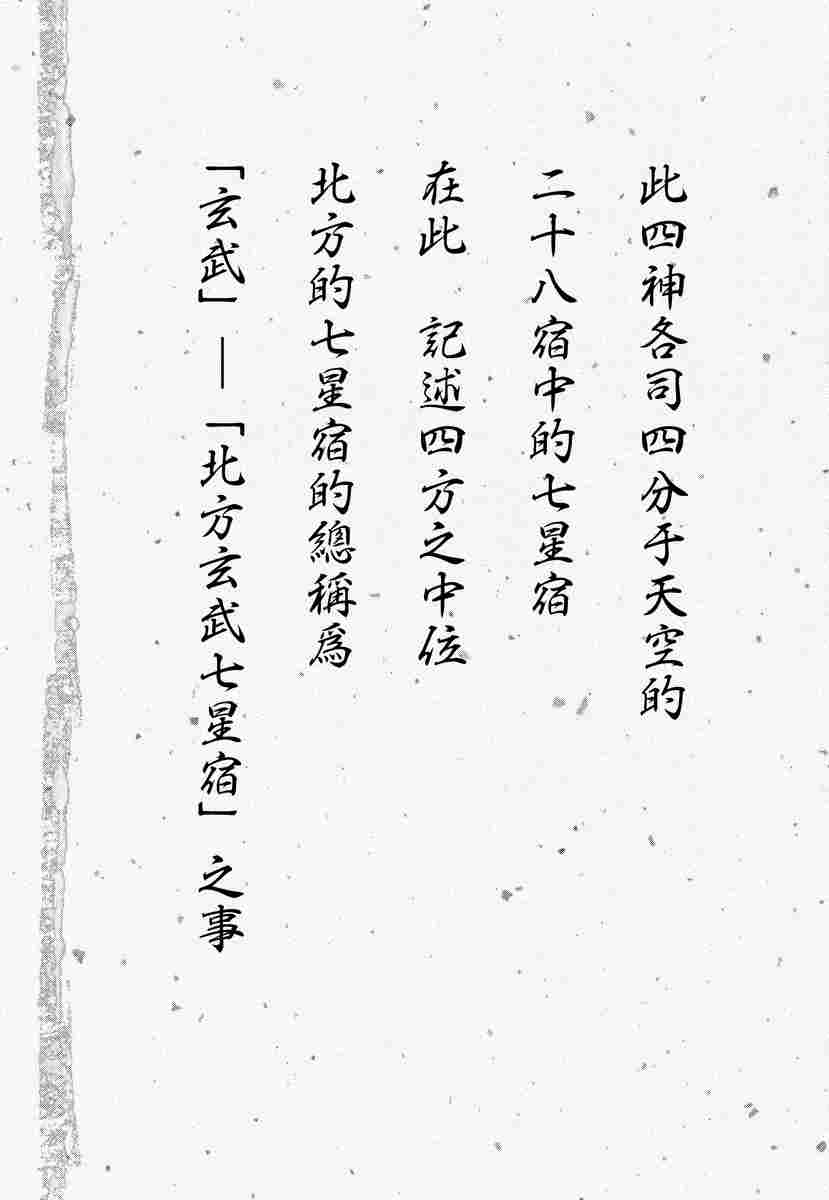 此四神各司四分于天空的
二十八宿中的七星宿
在此　記述四方之中位
北方的七星宿的總稱爲
「玄武」—「北方玄武七星宿」之事